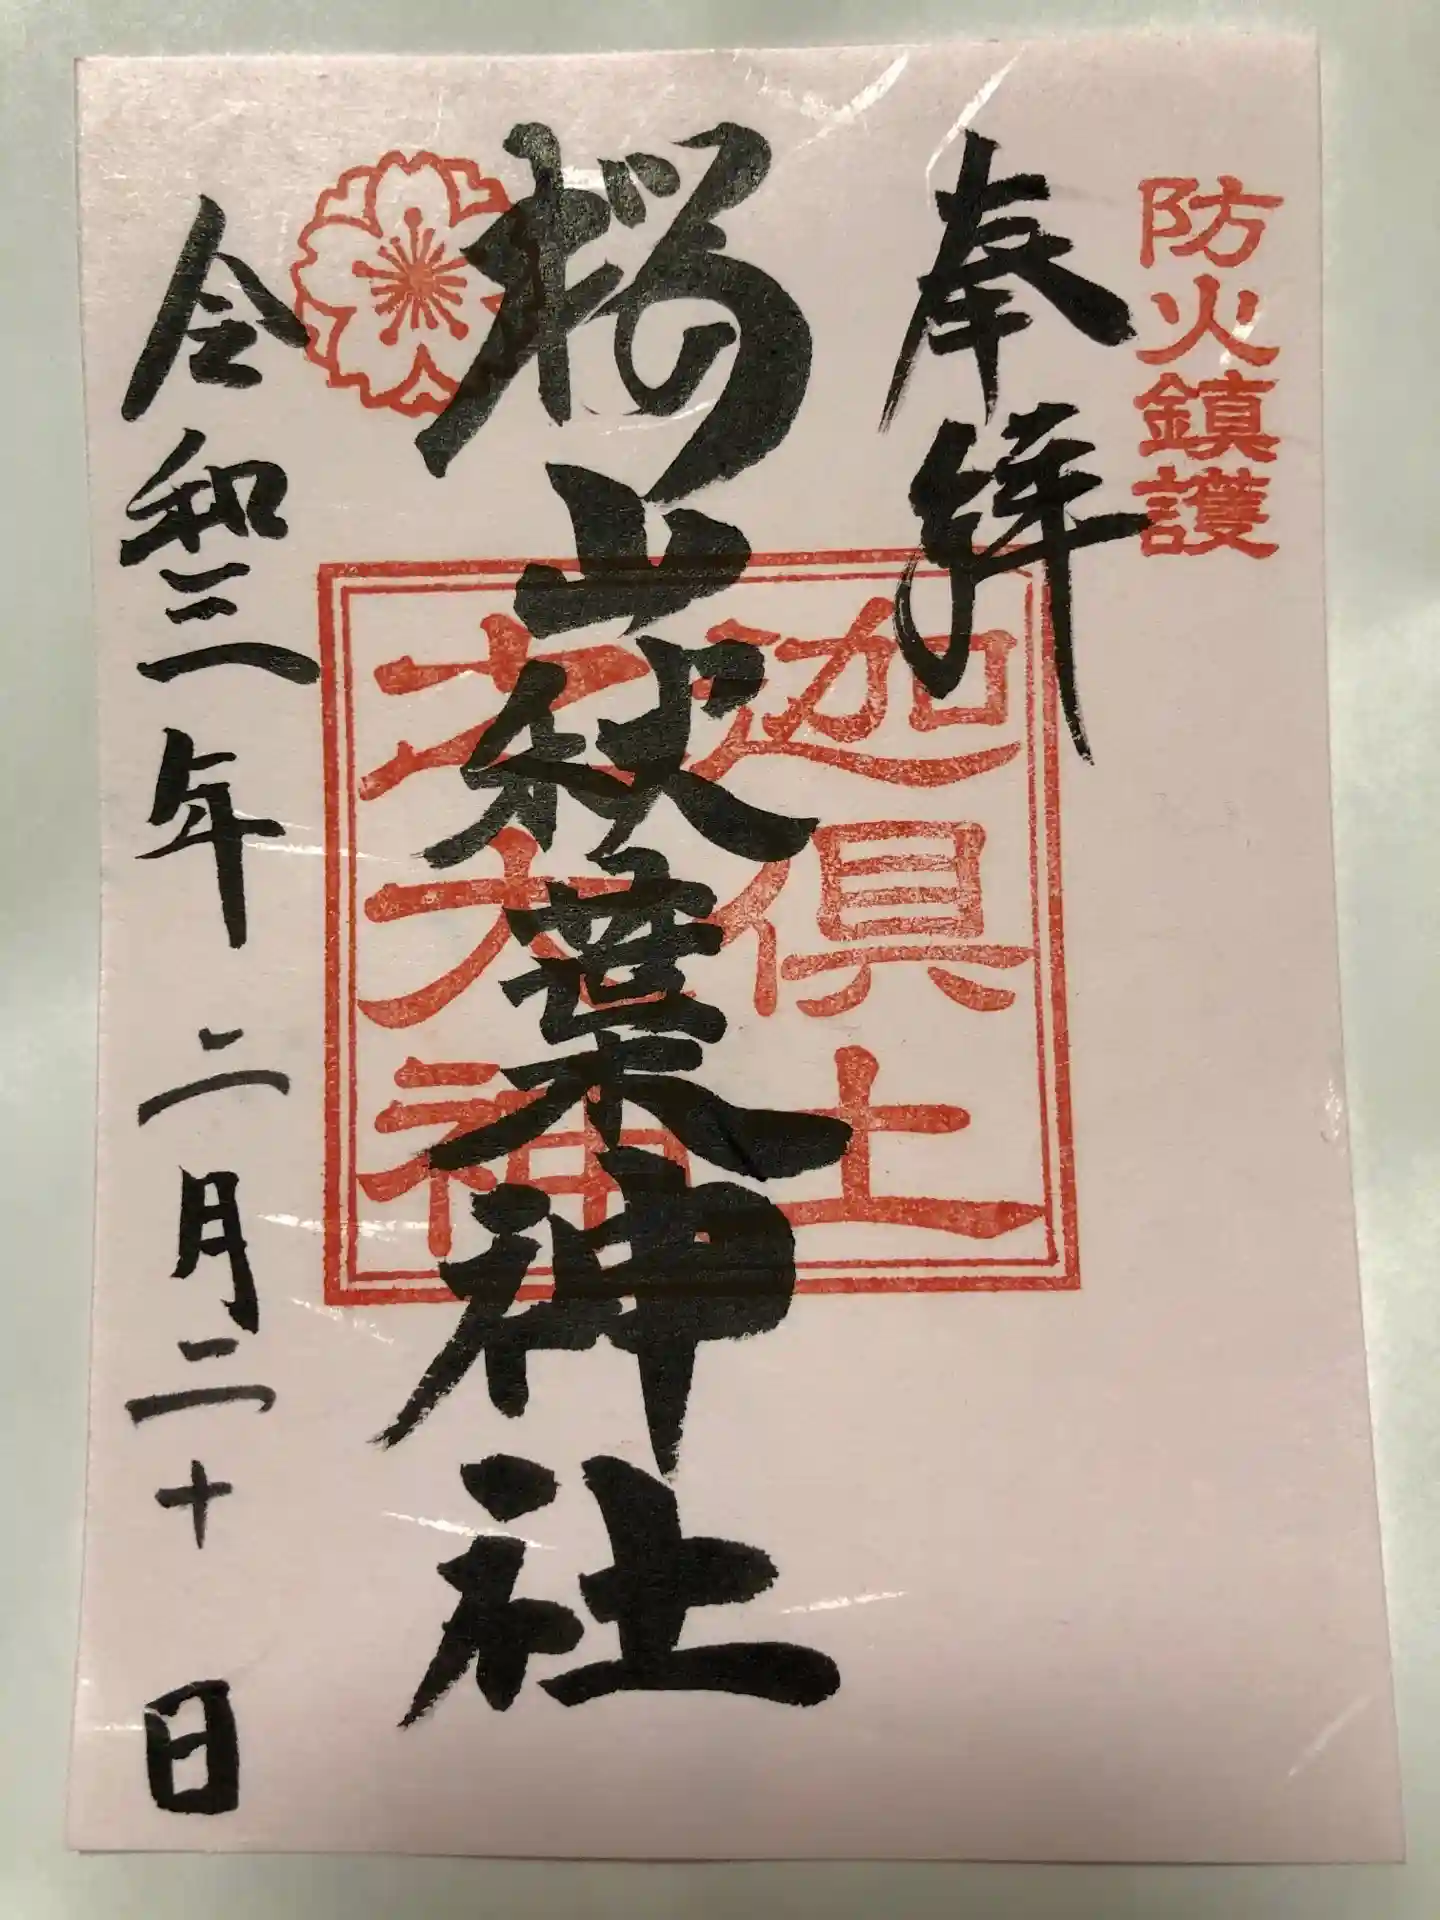 防火鎮護
奉拝
桜山秋葉神社
迦倶土
大神
令和三年二月二十日